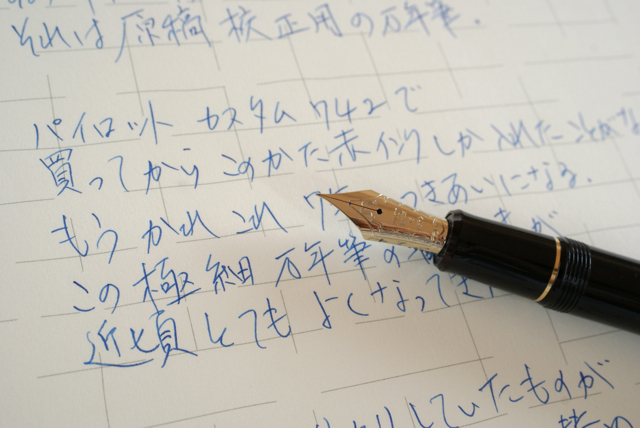 それは原稿校正用の万年筆.
パイロット カスタム742で
買ってから このかた赤インクしか入れたことがな
もう かれこれ 7年 つきあいになる.
この極細万年筆の が
近頃とても よくなってき
していたものが